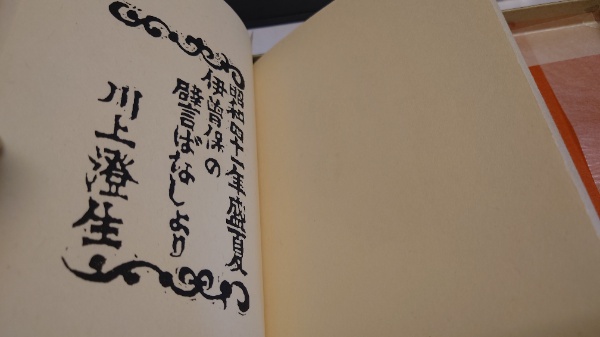 昭和四十一年盛夏
伊曽保の
譬言ばなしより
川上澄生